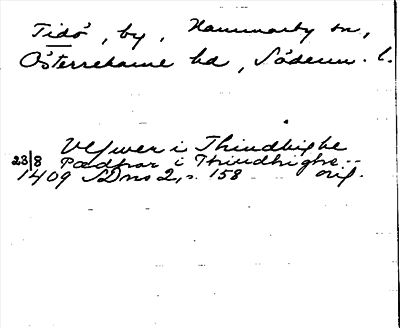 Tidö, by, Hammarby sn,
Österrekarne hd, Söderm. l.
Ulfwer i Thindhighe
23/8 Pædhar i Thindhighe --
1409 SDns 2, s. 158 orig.